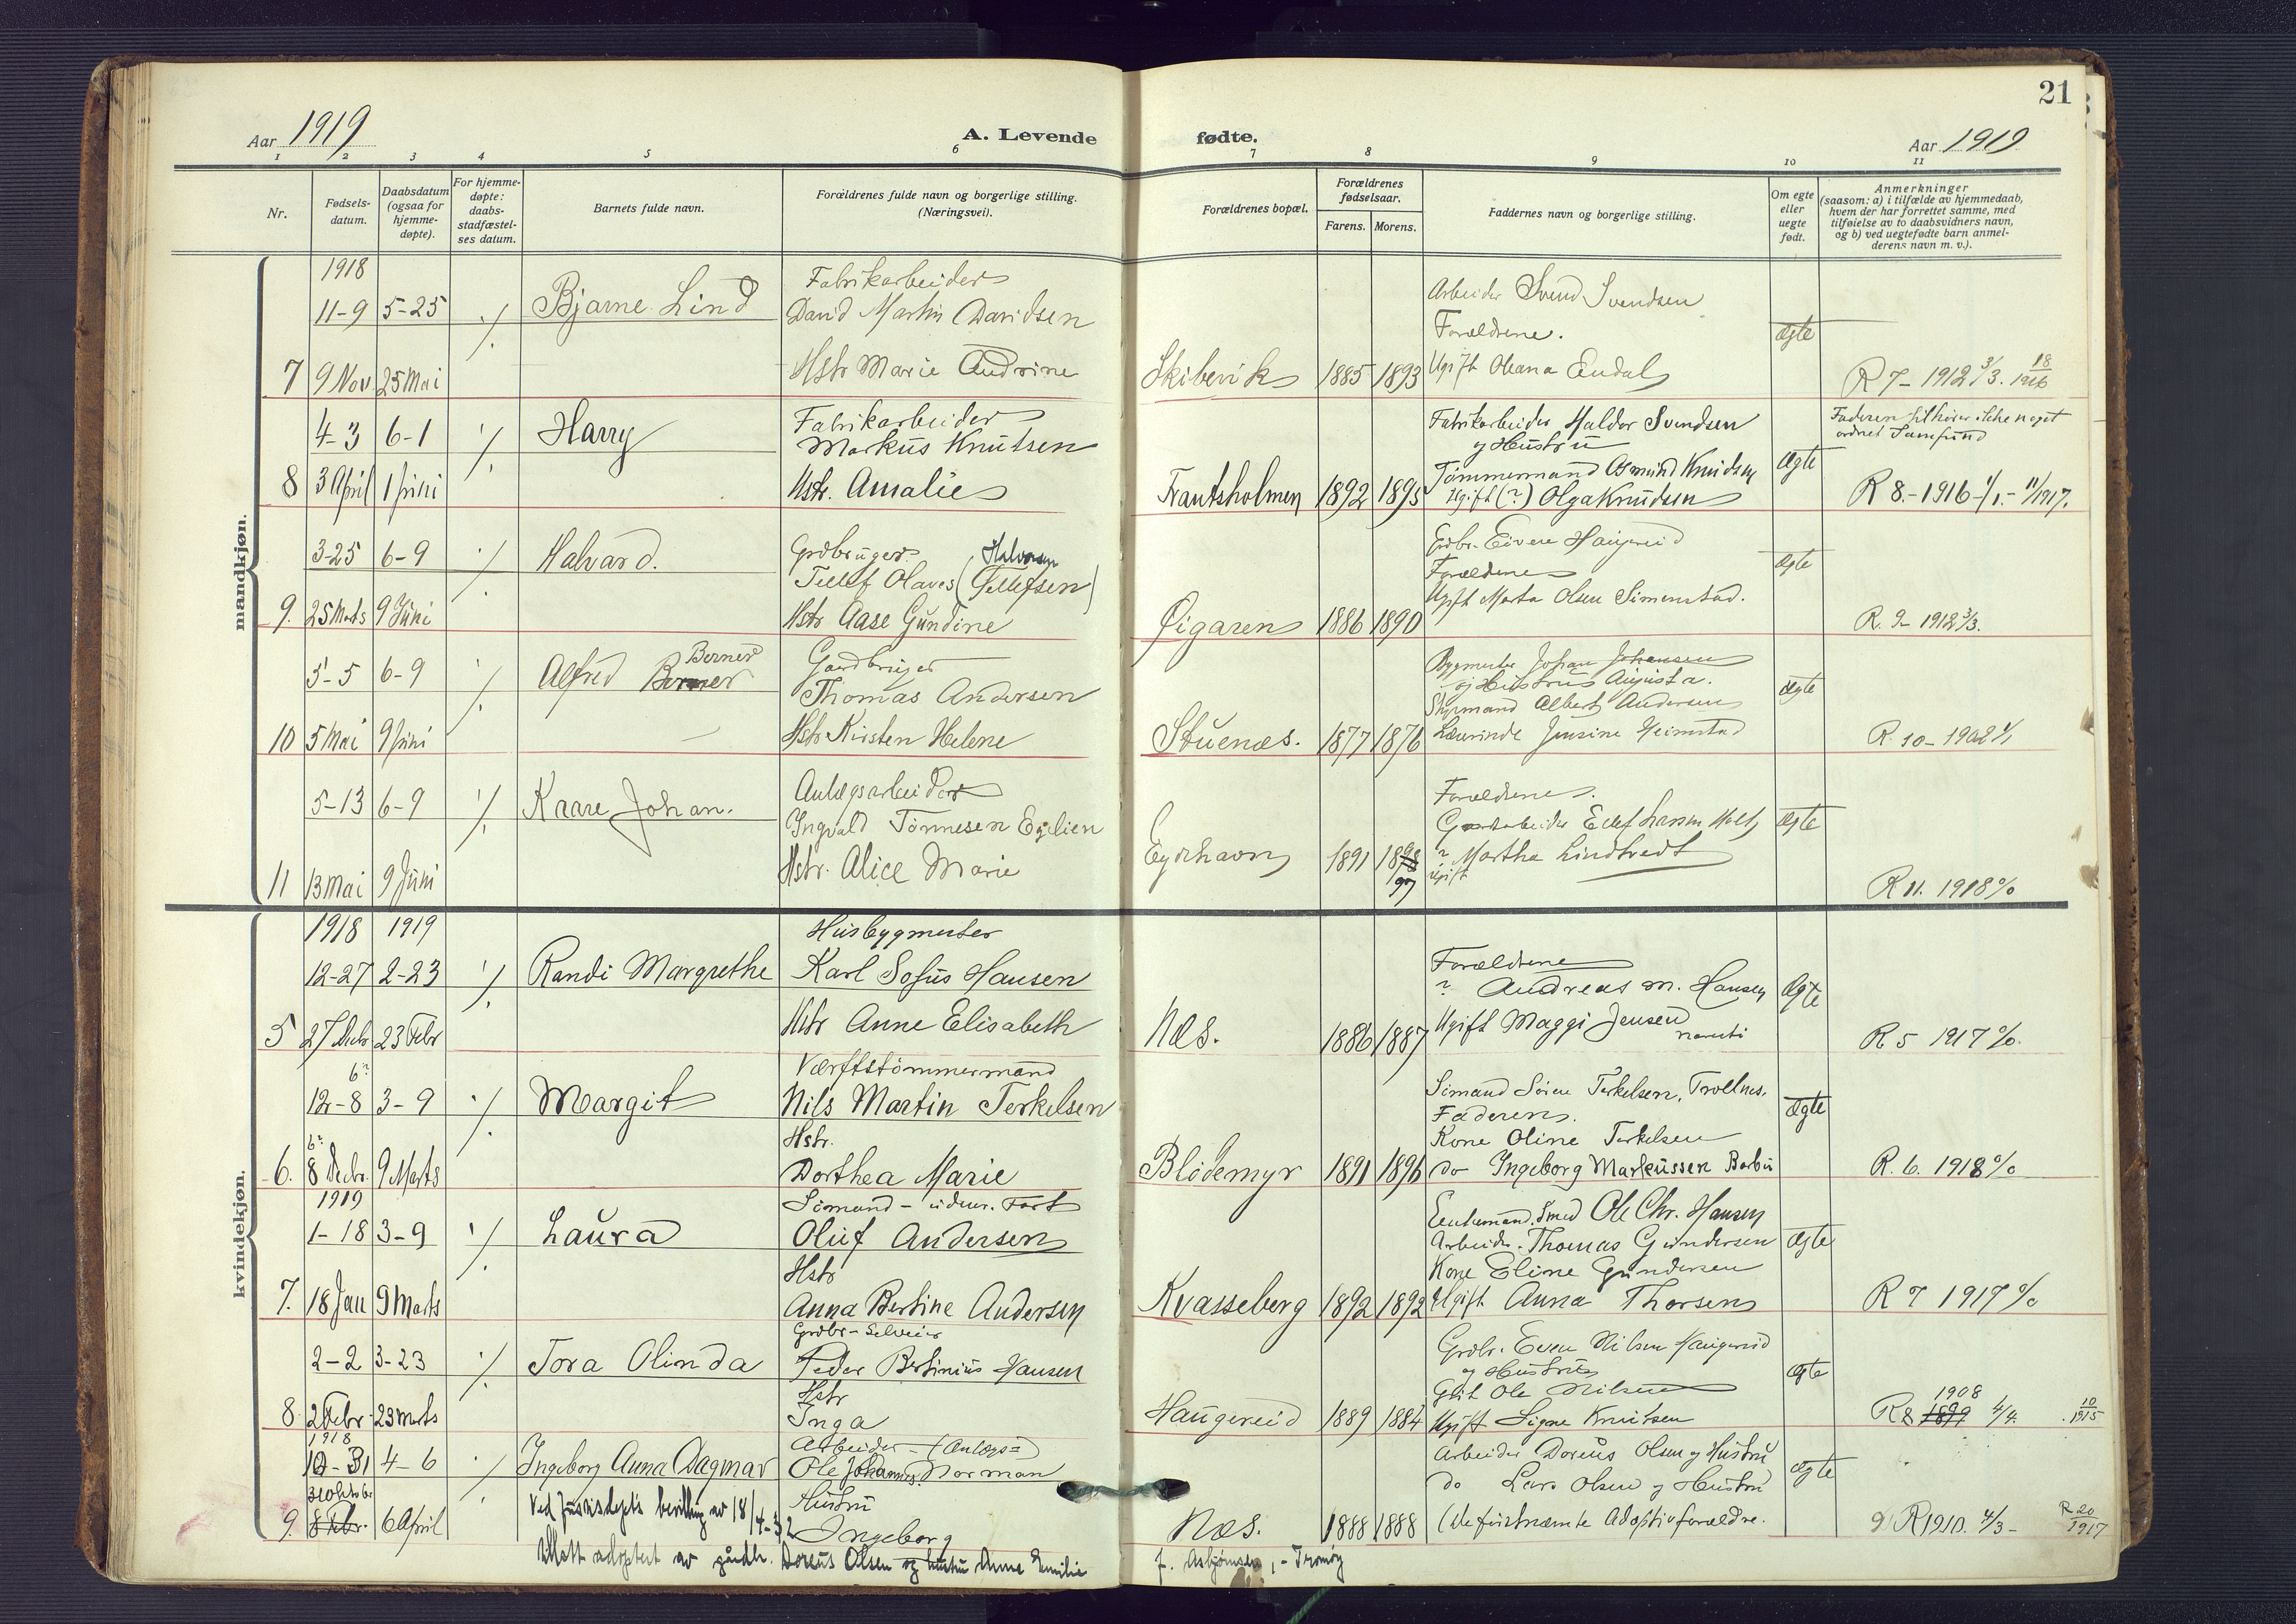 21
Aar 1919
A. Levende fødte.
Aar 1919
1 2 3 4 5 6 7 8 9 10 11
Nr.
Fødsels-
datum.
Daabsdatum
(ogsaa for
hjemme-
døpte).
For hjemme-
døpte:
daabs-
stadfæstel-
ses datum.
Barnets fulde navn.
Forældrenes fulde navn og borgerlige stilling.
(Næringsvei).
Forældrenes bopæl.
Forældrenes
fødselsaar.
Farens. Morens.
Faddernes navn og borgerlige stilling.
Om egte
eller
uegte
født.
Anmerkninger
(saasom: a) i tilfælde av hjemmedaab,
hvem der har forrettet samme, med
tilføielse av to daabsvidners navn,
og b) ved uegtefødte barn anmel-
derens navn m. v.).
mandkjøn.
1918
11-9 5-25 ./. Bjarne Lind
Fabrikarbeider
David Martin Davidsen
7 9 Nov 25 Mai
Hstr Marie Andrine
Skibevik 1885 1893
Arbeider Svend Svendsen
Forældrene.
Ugift Oleana Endal
Ægte
R 7- 1912 3/3. 18/1916
4-3 6-1 ./. Harry
Fabrikarbeider
Markus Knutsen
8 3 April 1 Juni
Hstr. Amalie
Frantsholmen 1892 1895
Fabrikarbeider Haldor Svendsen
og Hustru
Tømmermand Osmund Knudsen
Ugift (?) Olga Knudsen
Ægte
Faderen tilhører ikke noget
ordnet Samfund
R 8.- 1916 1/1.- 11/1917.
3-25 6-9 ./. Halvard.
Grdbruger.
Halvorsen
Tellef Olaves (Tellefsen)
9. 25 Marts 9 Juni
Hstr Aase Gundine
Øigaren 1886 1890
Grdbr. Eivene Haugereid
Forældrene
Ugift Marta Olsen Simonstad.
Ægte
R. 9- 1912 3/3.
5-5 6-9 ./. Alfred Berner
Berner
Gaardbruger
Thomas Andersen
10 5 Mai 9 Juni
Hstr Kirsten Helene
Stuenæs. 1877 1876
Bygmester Johan Johansen
og Hustru Augusta.
Styrmand Albert Andersen
Lærerinde Jensine Heimstad
Ægte
R. 10- 1902 1/1
5-13 6-9 ./. Kaare Johan.
Anlægsarbeider
Ingvald Tønnesen Egelien
11 13 Mai 9 Juni
Hstr. Alice Marie
Eydehavn 1891 1898
97
Forældrene.
? Martha Lindtvedt
ugift
Ægte
R 11. 1918 %
kvindekjøn.
1918 1919
12-27 2-23 ./. Randi Margrethe
Husbygmester
Karl Sofus Hansen
5 27 Decbr 23 Febr
Hstr Anne Elisabeth
Næs. 1886 1887
Forældrene
? Andreas M. Hansen
Ugift Maggi Jensen
Ægte
R 5 1917 %.
6?
12-8 3-9 ./. Margit
Værftstømmermand
Nils Martin Terkelsen
Hstr.
6?
6. 8 Decbr. 9 Marts
Dorthea Marie
Blødemyr 1891 1896
Sømand Søren Terkelsen, Trollnes.
Faderen.
Kone Oline Terkelsen
do Ingeborg Markussen Barbu
Ægte
R. 6. 1918 %
1919
1-18 3-9 ./. Laura
Sømand - udenr. Fart
Oluf Andersen
Hstr
7. 18 Jan 9 Marts
Anna Bertine Andersen
Kvasseberg 1892 1892
Enkemand. Smed Ole Chr. Hansen
Arbeider. Thomas Gundersen
Kone Eline Gundersen
Ugift Anna Thorsen
Ægte
R 7 1917 %
2-2 3-23 ./. Tora Olinda
Grdbr- Selveier
Peder Bertinius Hansen
Hstr
8. 2 Febr. 23 Marts
Inga
Haugereid 1889 1884
Grdbr. Even Nilsen Haugereid
og Hustru
Ole Nilsen
Ugift Signe Knutsen
Ægte
1908
R 8 1899 4/4. 10/1915
1918
10-31 4-6 ./. Ingeborg Anna Dagmar
Arbeider - (Anlægs=)
Ole Johannes Norman
31 Oktober
9. 8 Febr. 6 April
Hustru
Ingeborg
Næs. 1888 1888
Arbeider Doreus Olsen og Hustru
do Lars Olsen og Hustru
(De førstnævnte Adoptivforældre.
Ægte
9 R 1910. 4/3- R 20/1917
Ved Justisdepts bevilling av 18/4-32
tillatt adoptert av gårdbr. Doreus Olsen og hustru Anne Emilie
f. Asbjørnsen, - Tromøy